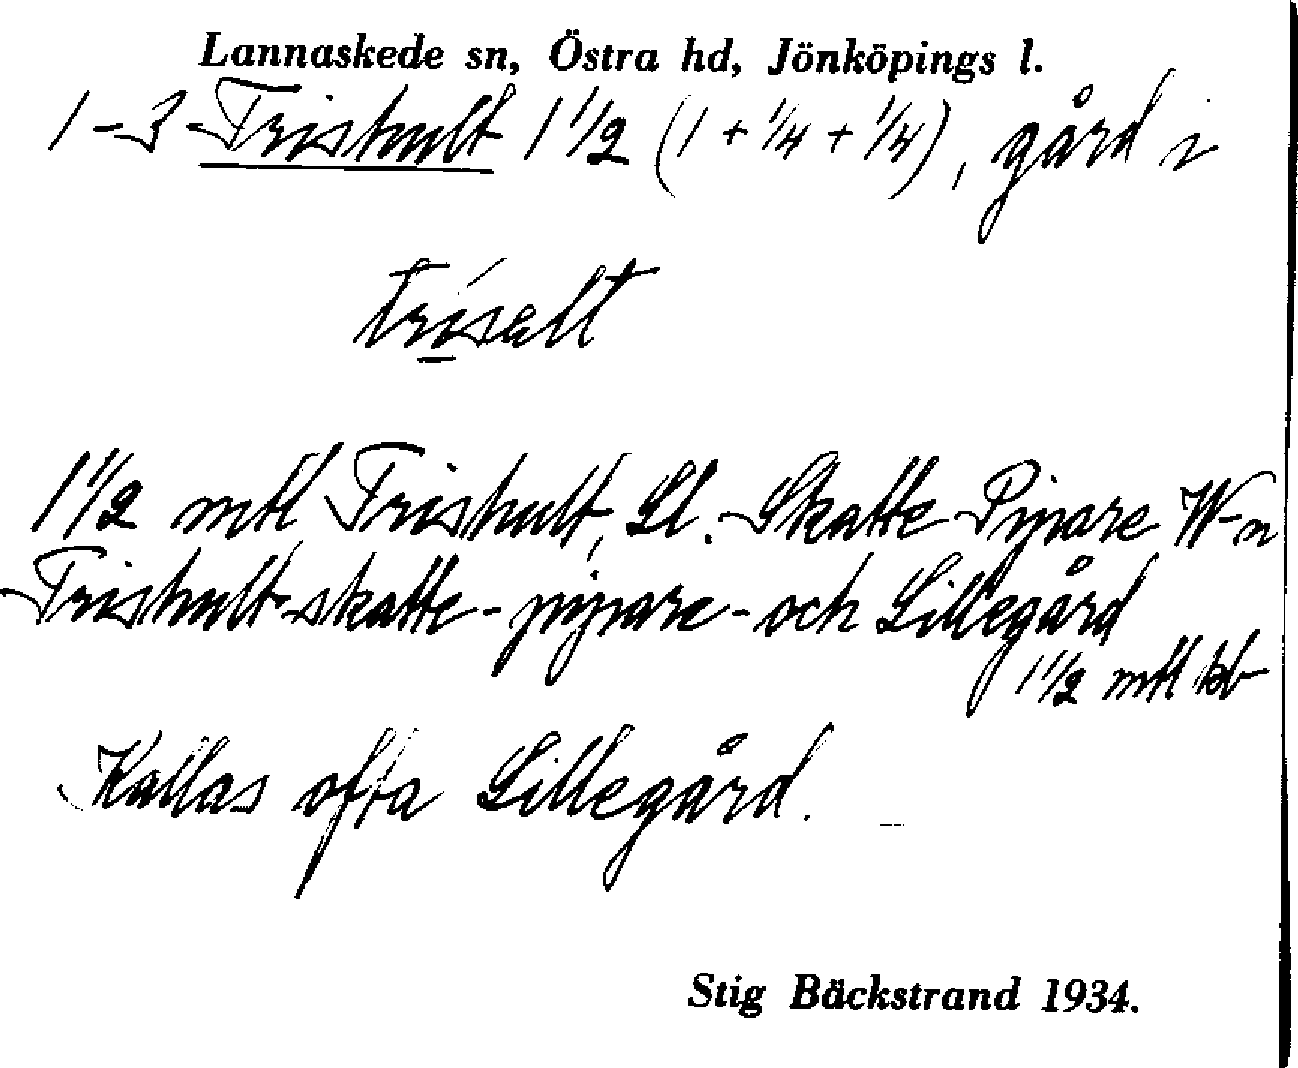 Lannaskede sn, Östra hd, Jönköpings l.
1-3 Trishult 1 1/2 (1 + 1/4 + 1/4), gård i
trísalt
1 1/2 mtl Trishult, Ll. Skatte Pijnare W-n
Trishult skatte- pijnare- och Lillegård
1 1/2 mtl kb
Kallas ofta Lillegård.
Stig Bäckstrand 1934.